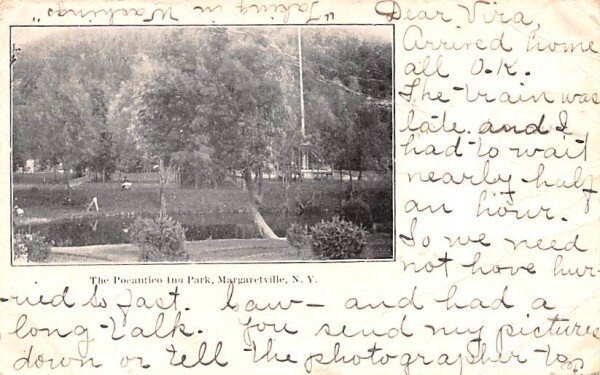 "Taking in Washings"
Dear Vira,
Arrived home
all O.K.
The train was
late and I
had to wait
nearly half
an hour.
So we need
not have hur-
-ried so fast. Saw- and had a
long talk. You send my pictures
down or tell the photographer to
The Pocantico Inn Park, Margaretville, N. Y.